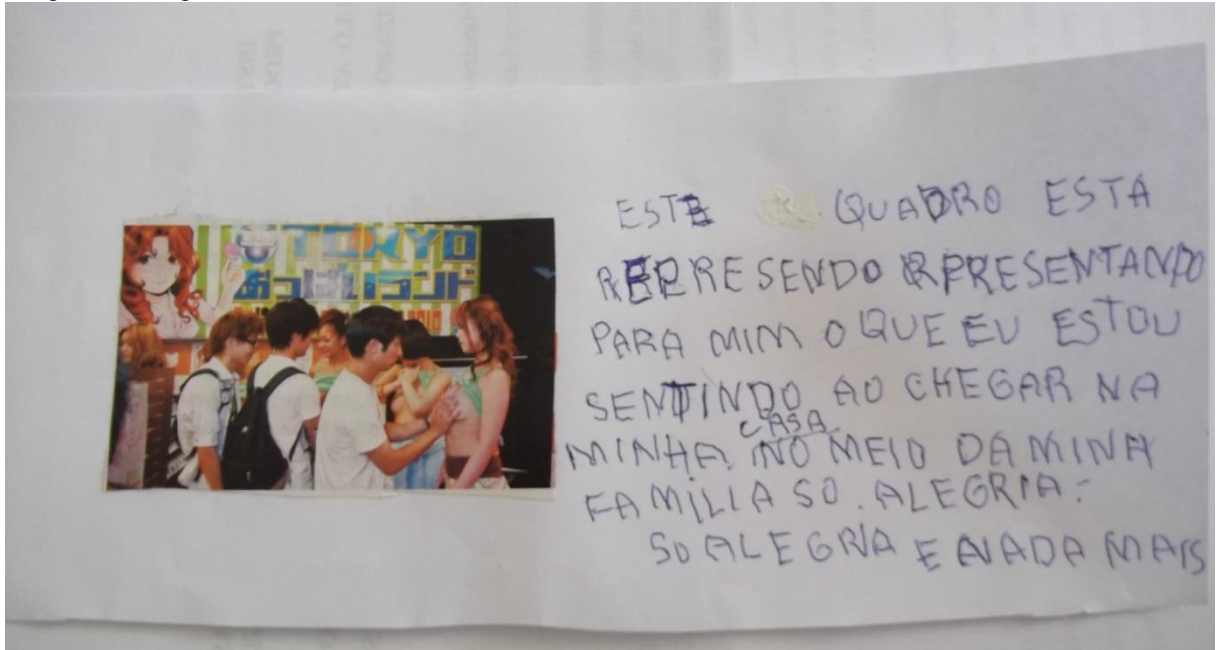 TOKYO
おっぱいランド
ESTE QUADRO ESTA
REPRESENDO RPRESENTANDO
PARA MIM O QUE EU ESTOU
SENTINDO AO CHEGAR NA
MINHA CASA NO MEIO DA MINHA
FAMILIA SO. ALEGRIA.
SO ALEGRIA E NADA MAIS